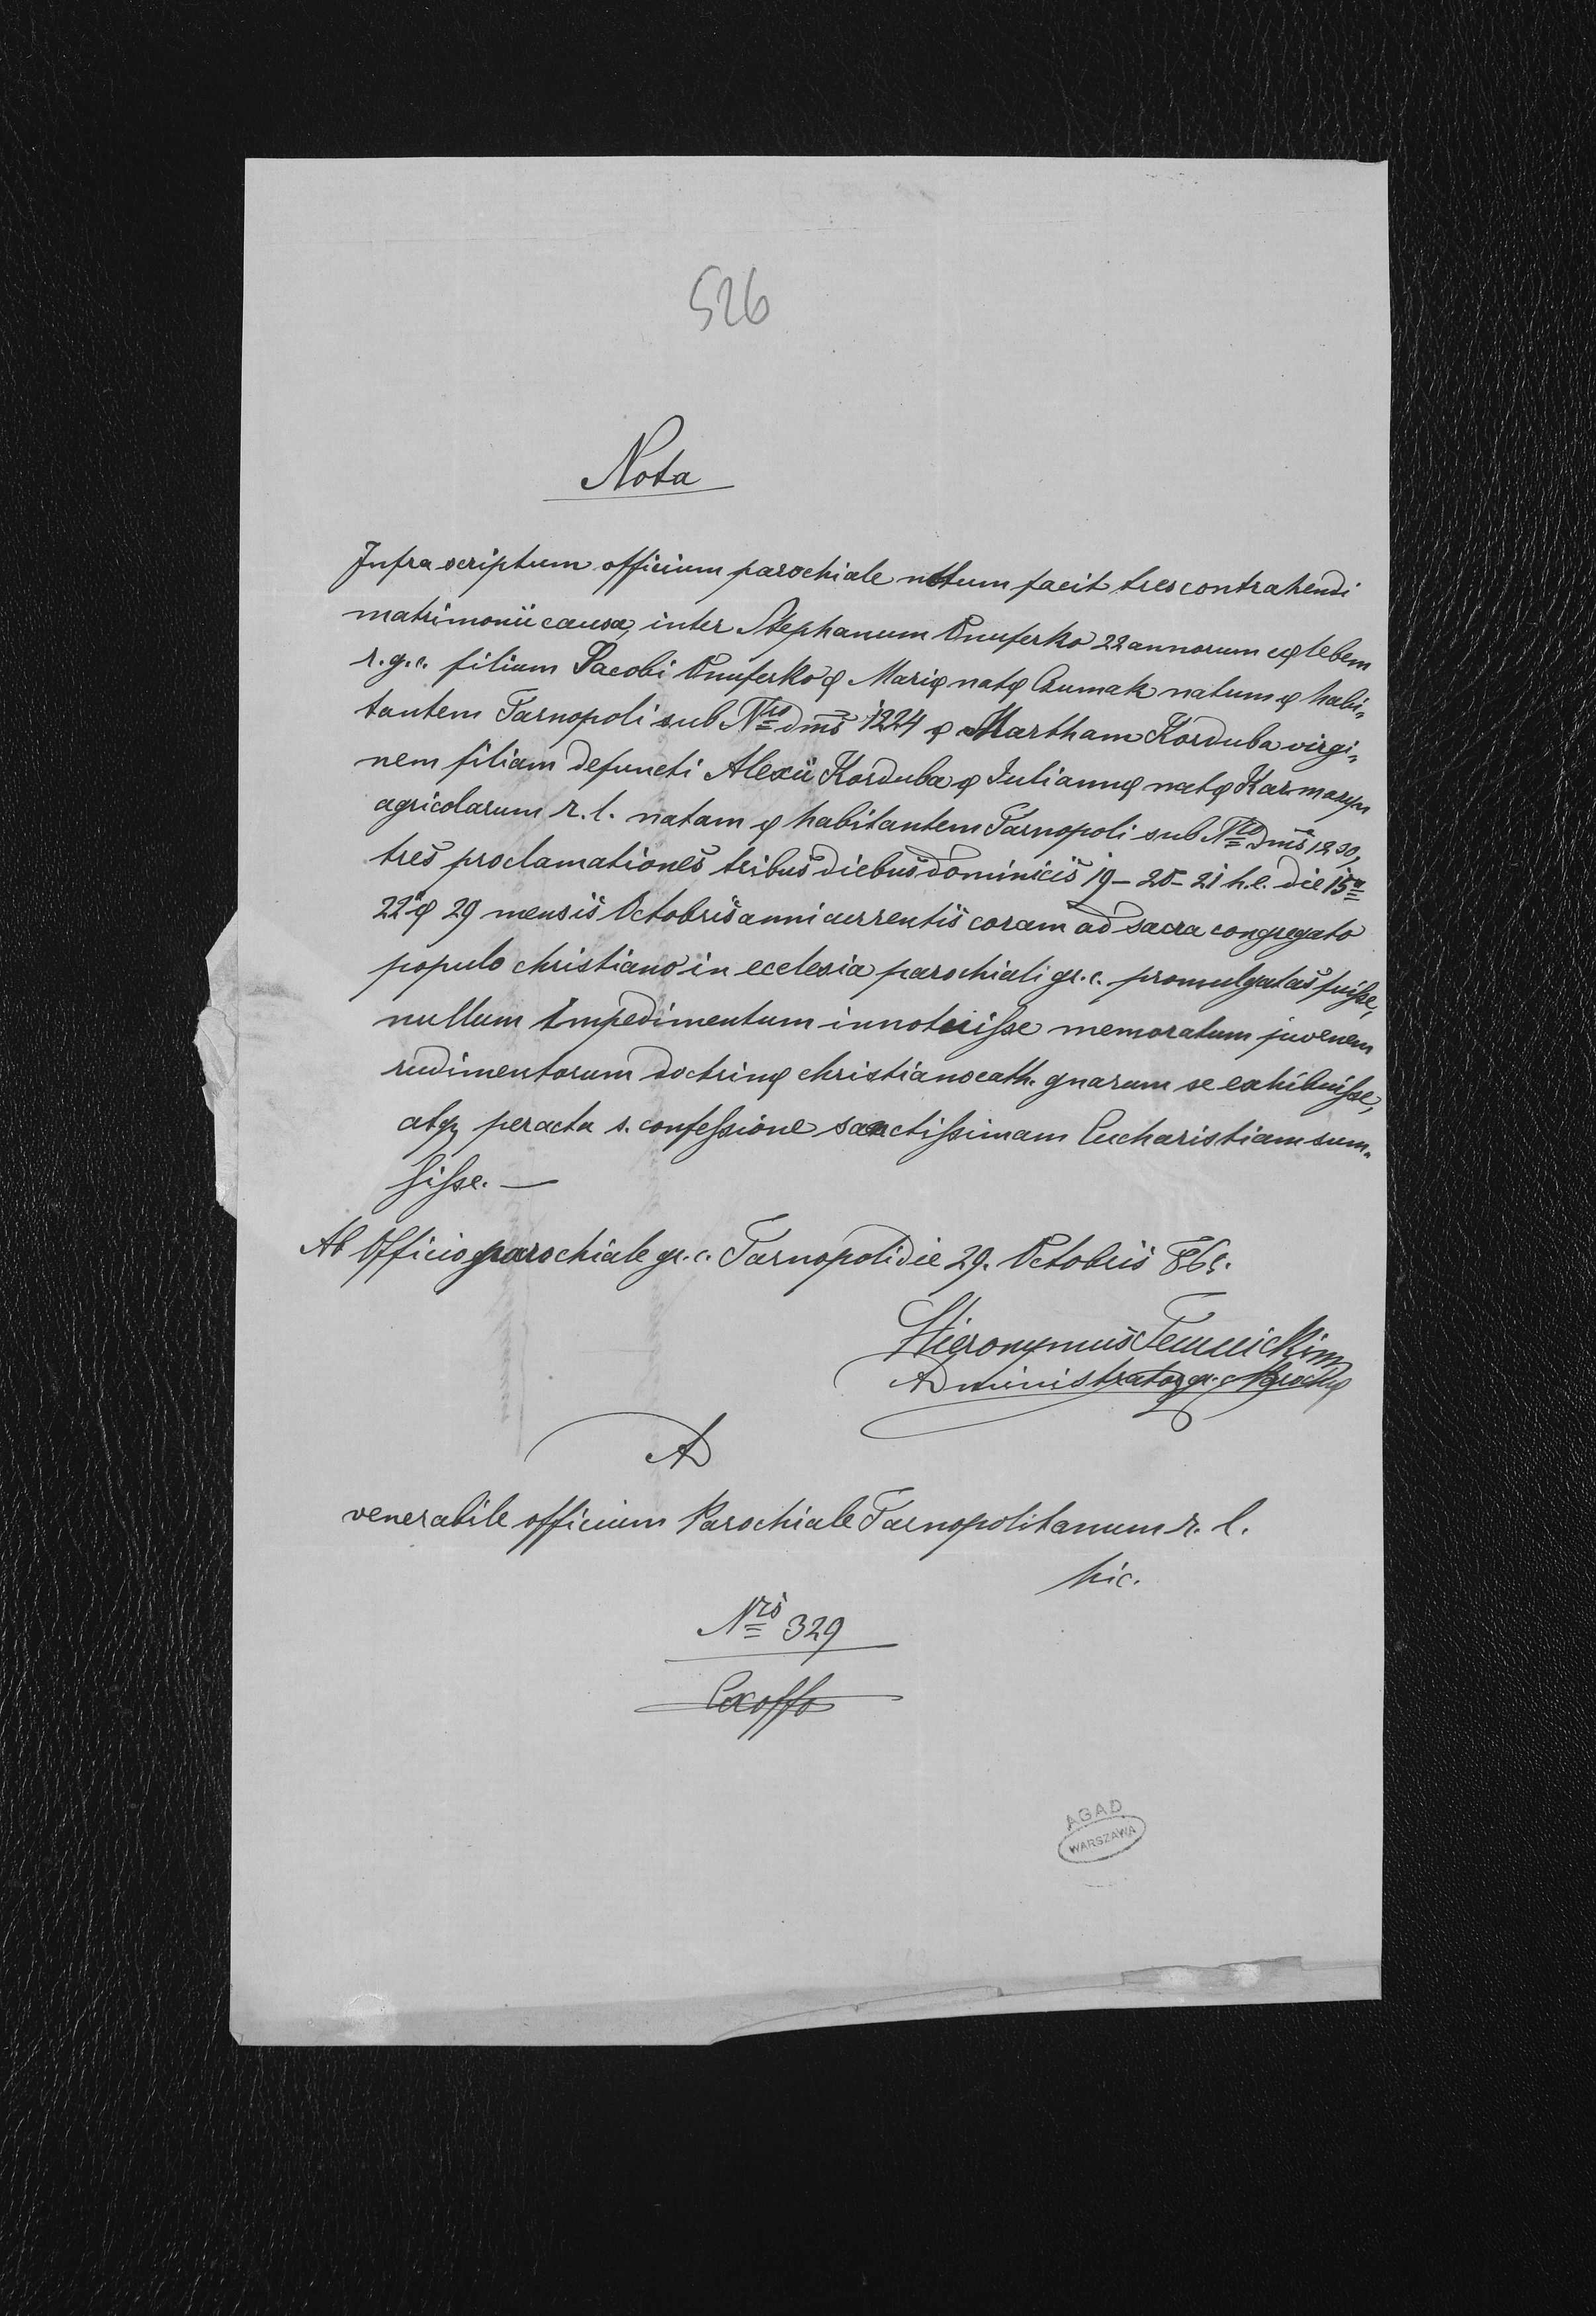 526
Nota
Infrascriptum officium parochiale notum facit tres contrahendi
matrimonii causa, inter Stephanum Onuferko 22 annorum cęlebem
r.g.c. filium Jacobi Onuferko & Marię natę Czumak natum & habi„
tantem Tarnopoli sub Nro dms 1224 & Martham Korduba virgi„
nem filiam defuncti Alexii Korduba & Juliannę natę Karmazyn
agricolarum r.l. natam & habitantem Tarnopoli sub Nro dms
tres proclamationes tribus diebus dominicis 19 – 20 – 21 h.e. die 15a
22 & 29 mensis Octobris anni currentis coram ad sacra congregato
populo christiano in ecclesia parochiali gr.c. promulgatas fuisse,
nullum Impedimentum innotuisse memoratum juvenem
rudimentorum doctrinę christianocath. gnarum se exhibuisse,
atq peracta s. confessione sanctissimam Eucharistiam sum„
sisse. —
Ab Officio parochiale gr.c. Tarnopoli die 29. Octobris
Hieronymus
Administrator gr. c. Parochię
Ad
venerabile officium Parochiale Tarnopolitanum r. l.
hic.
Nro 329
Exoffo
AGAD
WARSZAWA